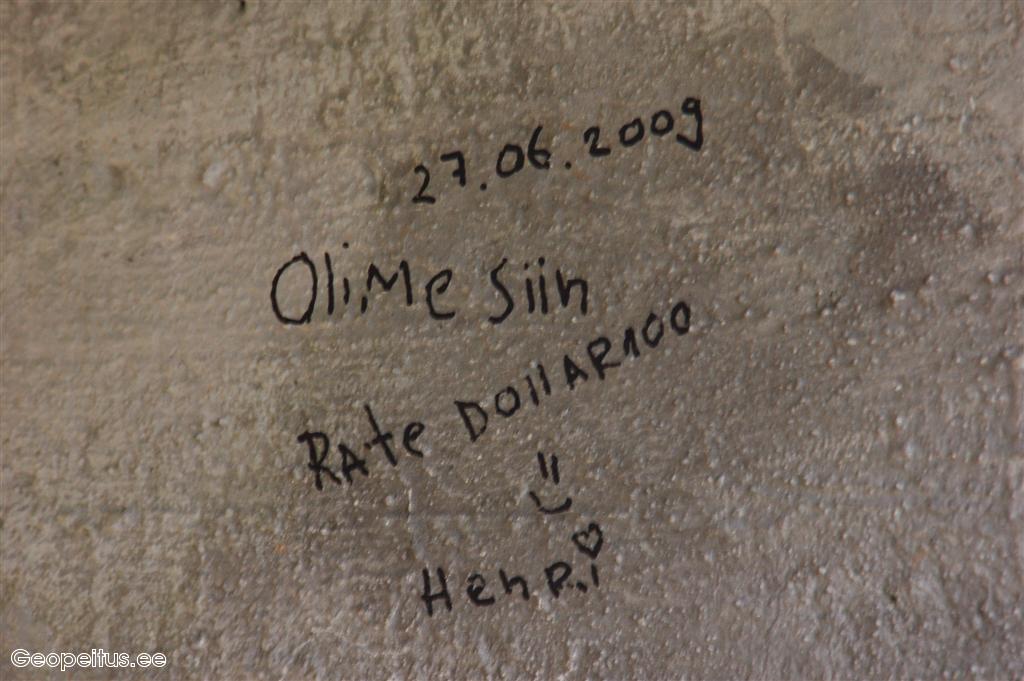 27.06.2009
Olime siin
RAte DollAR100
Henri
Geopeitus.ee